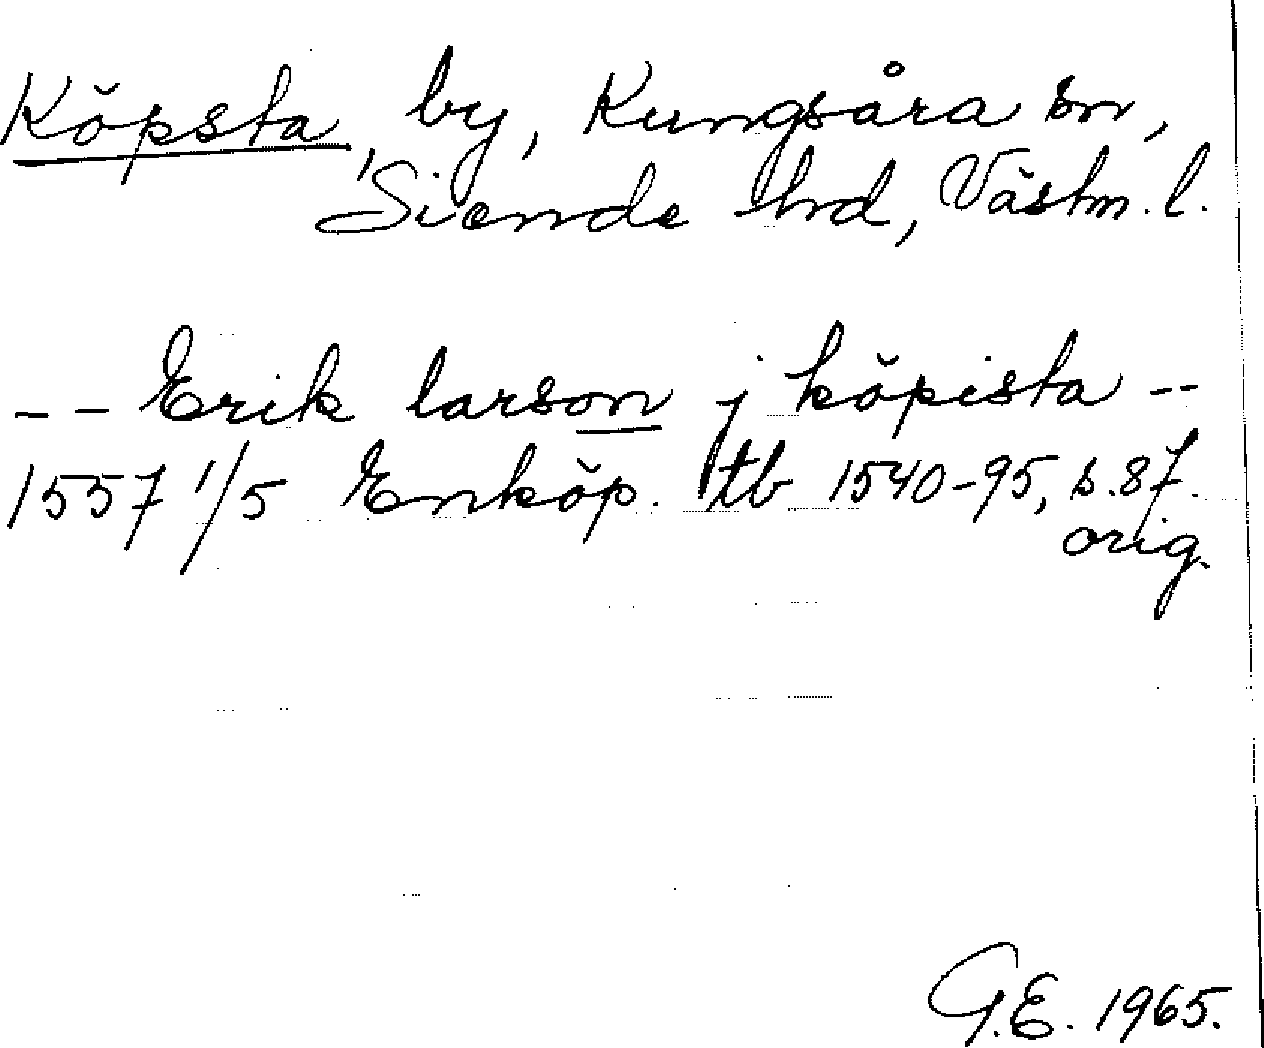 Köpsta by, Kungsåra sn,
Siende hrd, Västm. l.
-- Erik larson j köpista --
1557 1/5 Enköp. tb 1540-95, s. 87.
orig.
G.E. 1965.